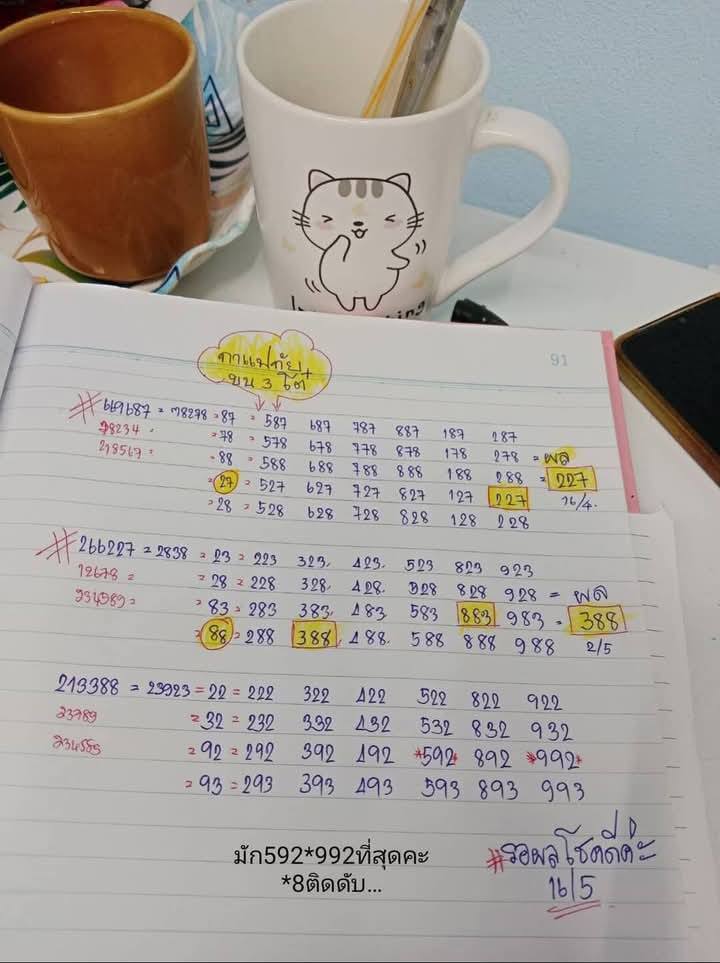 91
กาแฟภัย+
บน 3 โต
# 669687 = 78278 = 87 = 587 687 787 887 187 287
78234 = 78 = 578 678 778 878 178 278 = ผล
218567 = 88 = 588 688 788 888 188 288 = 227
= 27 = 527 627 727 827 127 227 16/4.
= 28 = 528 628 728 828 128 228
# 266227 = 2838 = 23 = 223 323. 423. 523 823 923
12678 = = 28 = 228 328. 428. 528 828 928 = ผล
234589 = = 83 = 283 383. 483. 583 883 983 = 388
= 88 = 288 388. 488. 588 888 988 2/5
213388 = 23923 = 22 = 222 322 422 522 822 922
23789 = 32 = 232 332 432 532 832 932
= 92 = 292 392 492 *592* 892 *992*
= 93 = 293 393 493 593 893 993
มัก592*992ที่สุดคะ
*8ติดดับ...
#รอผลโชคดีค่ะ
16/5